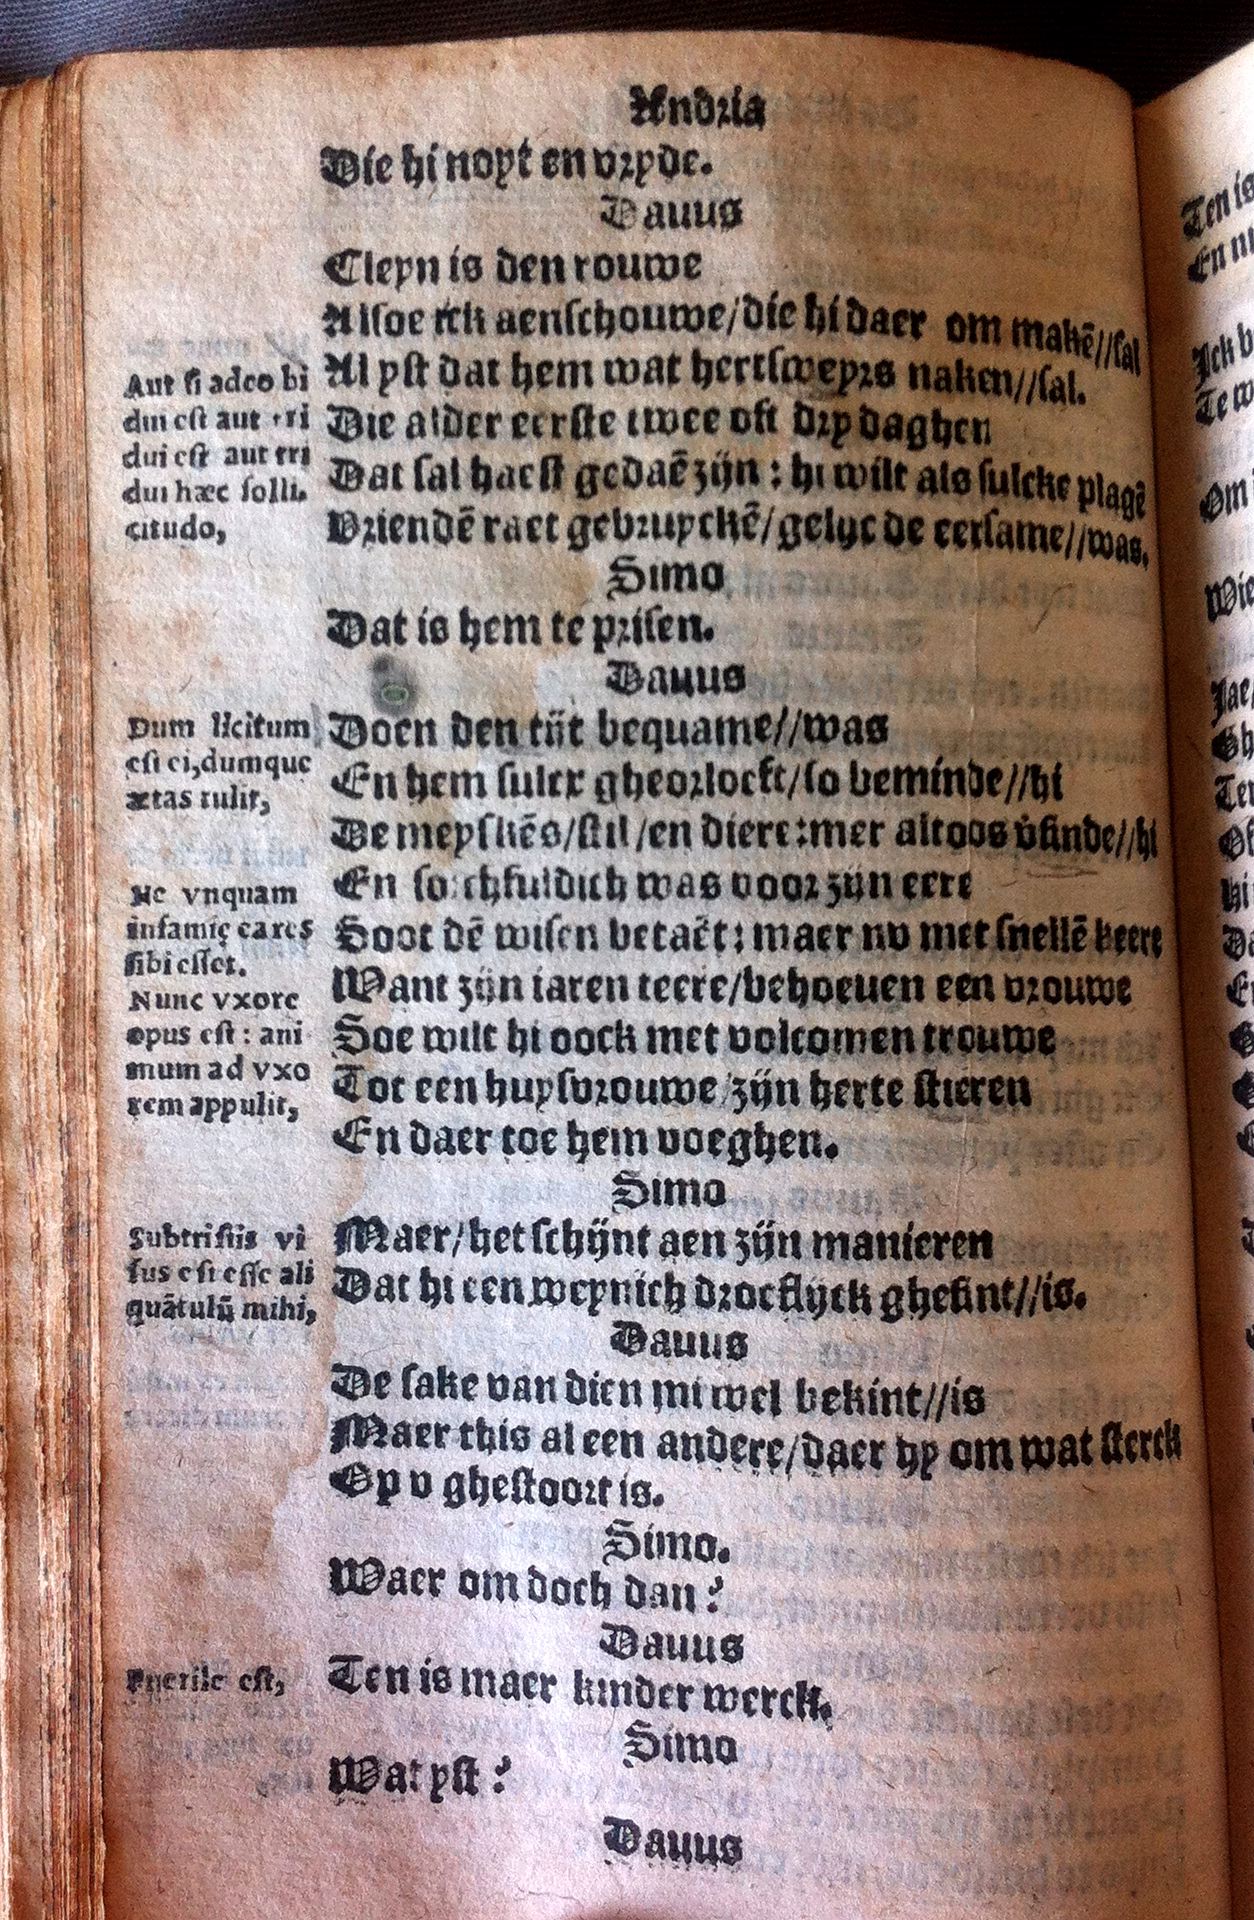 Andria
Die hi noyt en vryde.
Dauus
Cleyn is den rouwe
Alsoe ick aenschouwe/die hi daer om makē//sal
Al yst dat hem wat hertsweyrs naken//sal.
Die alder eerste twee oft dry daghen
Dat sal haest gedaē zijn : hi wilt als sulcke plagē
Vriendē raet gebruyckē/gelijc de eersame//was.
Simo
Dat is hem te prisen.
Dauus
Doen den tijt bequame//was
En hem sulcx gheorloeft/so beminde//hi
De meyskēs/stil/en diere:mer altoos v̄sinde//hi
En sorchfuldich was voor zijn eere
Soot dē wisen betaēt: maer nv met snellē keere
Want zijn iaren teere/behoeuen een vrouwe
Soe wilt hi oock met volcomen trouwe
Tot een huysvrouwe/zijn herte stieren
En daer toe hem voeghen.
Simo
Maer/het schijnt aen zijn manieren
Dat hi een weynich droeflijck ghesint//is.
Dauus
De sake van dien mi wel bekint//is
Maer this al een andere/daer hy om wat sterck
Op v ghestoort is.
Simo.
Waer om doch dan?
Dauus
Ten is maer kinder werck.
Simo
Wat yst?
Dauus
Aut si adeo bi
dui est aut tri
dui est aut tri
dui hæc solli.
citudo,
Dum licitum
est ei,dumque
ætas tulit,
Ne vnquam
infamię eares
sibi esset.
Nunc vxore
opus est : ani
mum ad vxo
rem appulit,
Subtristis vi
sus est esse ali
quātulū mihi,
Puerile est,
Ten is
En
Ick b
Te w
Om
Wie
Jae
Gh
Ten